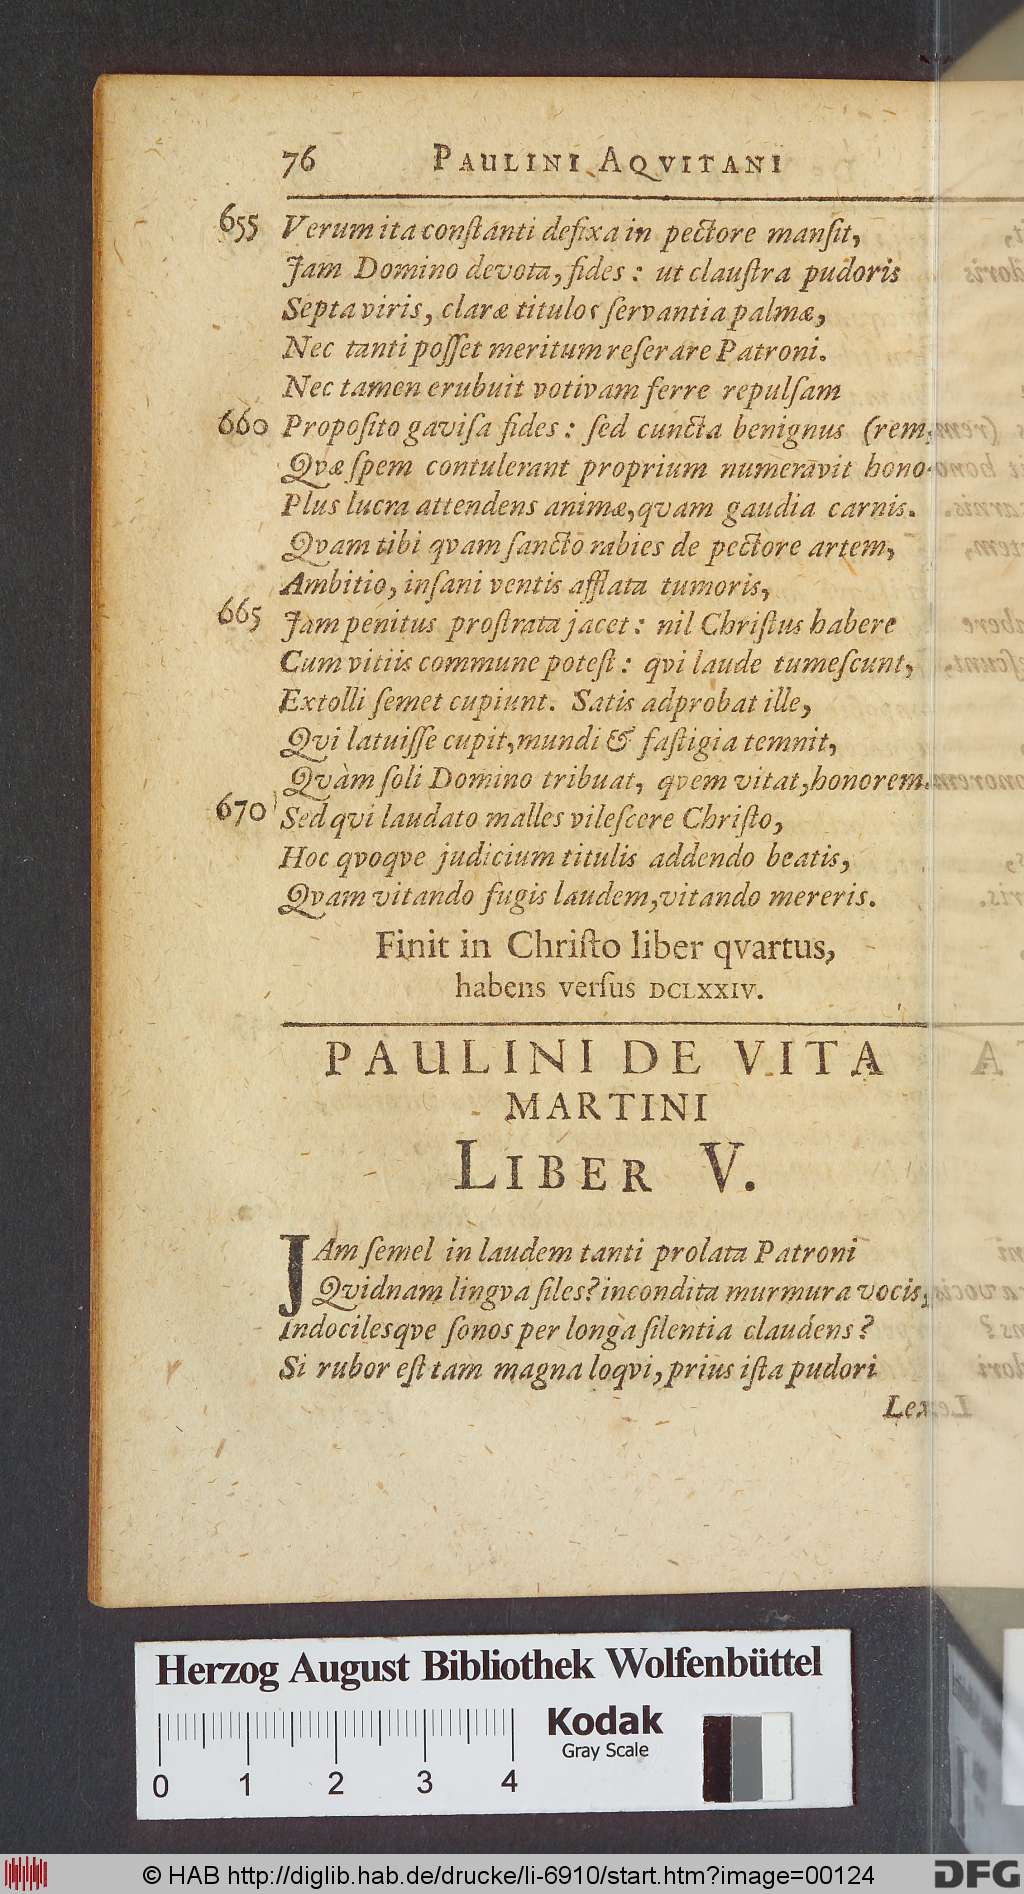 76 PAULINI AQVITANI
655 Verum ita conſtanti defixa in pectore manſit,
Jam Domino devota, fides: ut clauſtra pudoris
Septa viris, claræ titulos ſervantia palmæ,
Nec tanti poſſet meritum reſerare Patroni.
Nec tamen erubuit votivam ferre repulſam
660 Propoſito gaviſa fides: ſed cuncta benignus (rem,
Qvæ ſpem contulerant proprium numeravit hono-
Plus lucra attendens animæ, qvam gaudia carnis.
Qvam tibi qvam ſancto rabies de pectore artem,
Ambitio, inſani ventis afflata tumoris,
665 Jam penitus proſtrata jacet: nil Chriſtus habere
Cum vitiis commune poteſt: qvi laude tumeſcunt,
Extolli ſemet cupiunt. Satis adprobat ille,
Qvi latuiſſe cupit, mundi & faſtigia temnit,
Qvàm ſoli Domino tribuat, qvem vitat, honorem.
670 Sed qvi laudato malles vileſcere Chriſto,
Hoc qvoqve judicium titulis addendo beatis,
Qvam vitando fugis laudem, vitando mereris.
Finit in Chriſto liber qvartus,
habens verſus DCLXXIV.
PAULINI DE VITA
MARTINI
LIBER V.
JAm ſemel in laudem tanti prolata Patroni
Qvidnam lingva ſiles? incondita murmura vocis,
Indocilesqve ſonos per longa ſilentia claudens?
Si rubor eſt tam magna loqvi, prius iſta pudori
Lex
Herzog August Bibliothek Wolfenbüttel
Kodak
Gray Scale
0 1 2 3 4
© HAB http://diglib.hab.de/drucke/li-6910/start.htm?image=00124
DFG